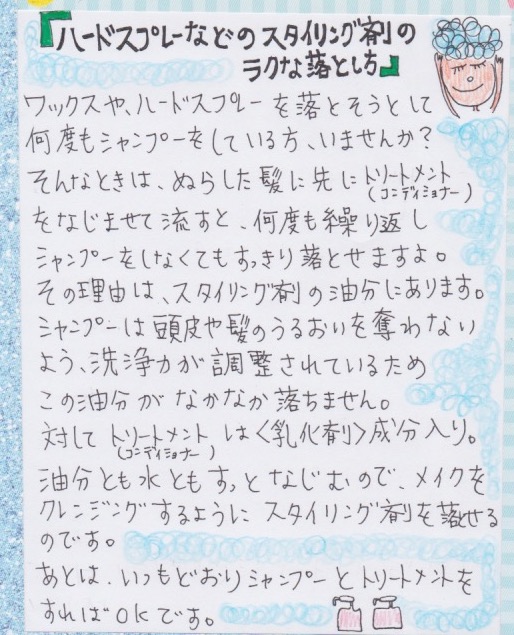 『ハードスプレーなどのスタイリング剤の
ラクな落とし方』
ワックスや、ハードスプレーを落とそうとして
何度もシャンプーをしている方、いませんか？
そんなときは、ぬらした髪に先にトリートメント
(コンディショナー)
をなじませて流すと、何度も繰り返し
シャンプーをしなくてもすっきり落とせますよ。
その理由は、スタイリング剤の油分にあります。
シャンプーは頭皮や髪のうるおいを奪わない
よう、洗浄力が調整されているため
この油分がなかなか落ちません。
対してトリートメントは〈乳化剤〉成分入り。
(コンディショナー)
油分とも水ともすっとなじむので、メイクを
クレンジングするようにスタイリング剤を落せる
のです。
あとは、いつもどおりシャンプーとトリートメントを
すればOKです。